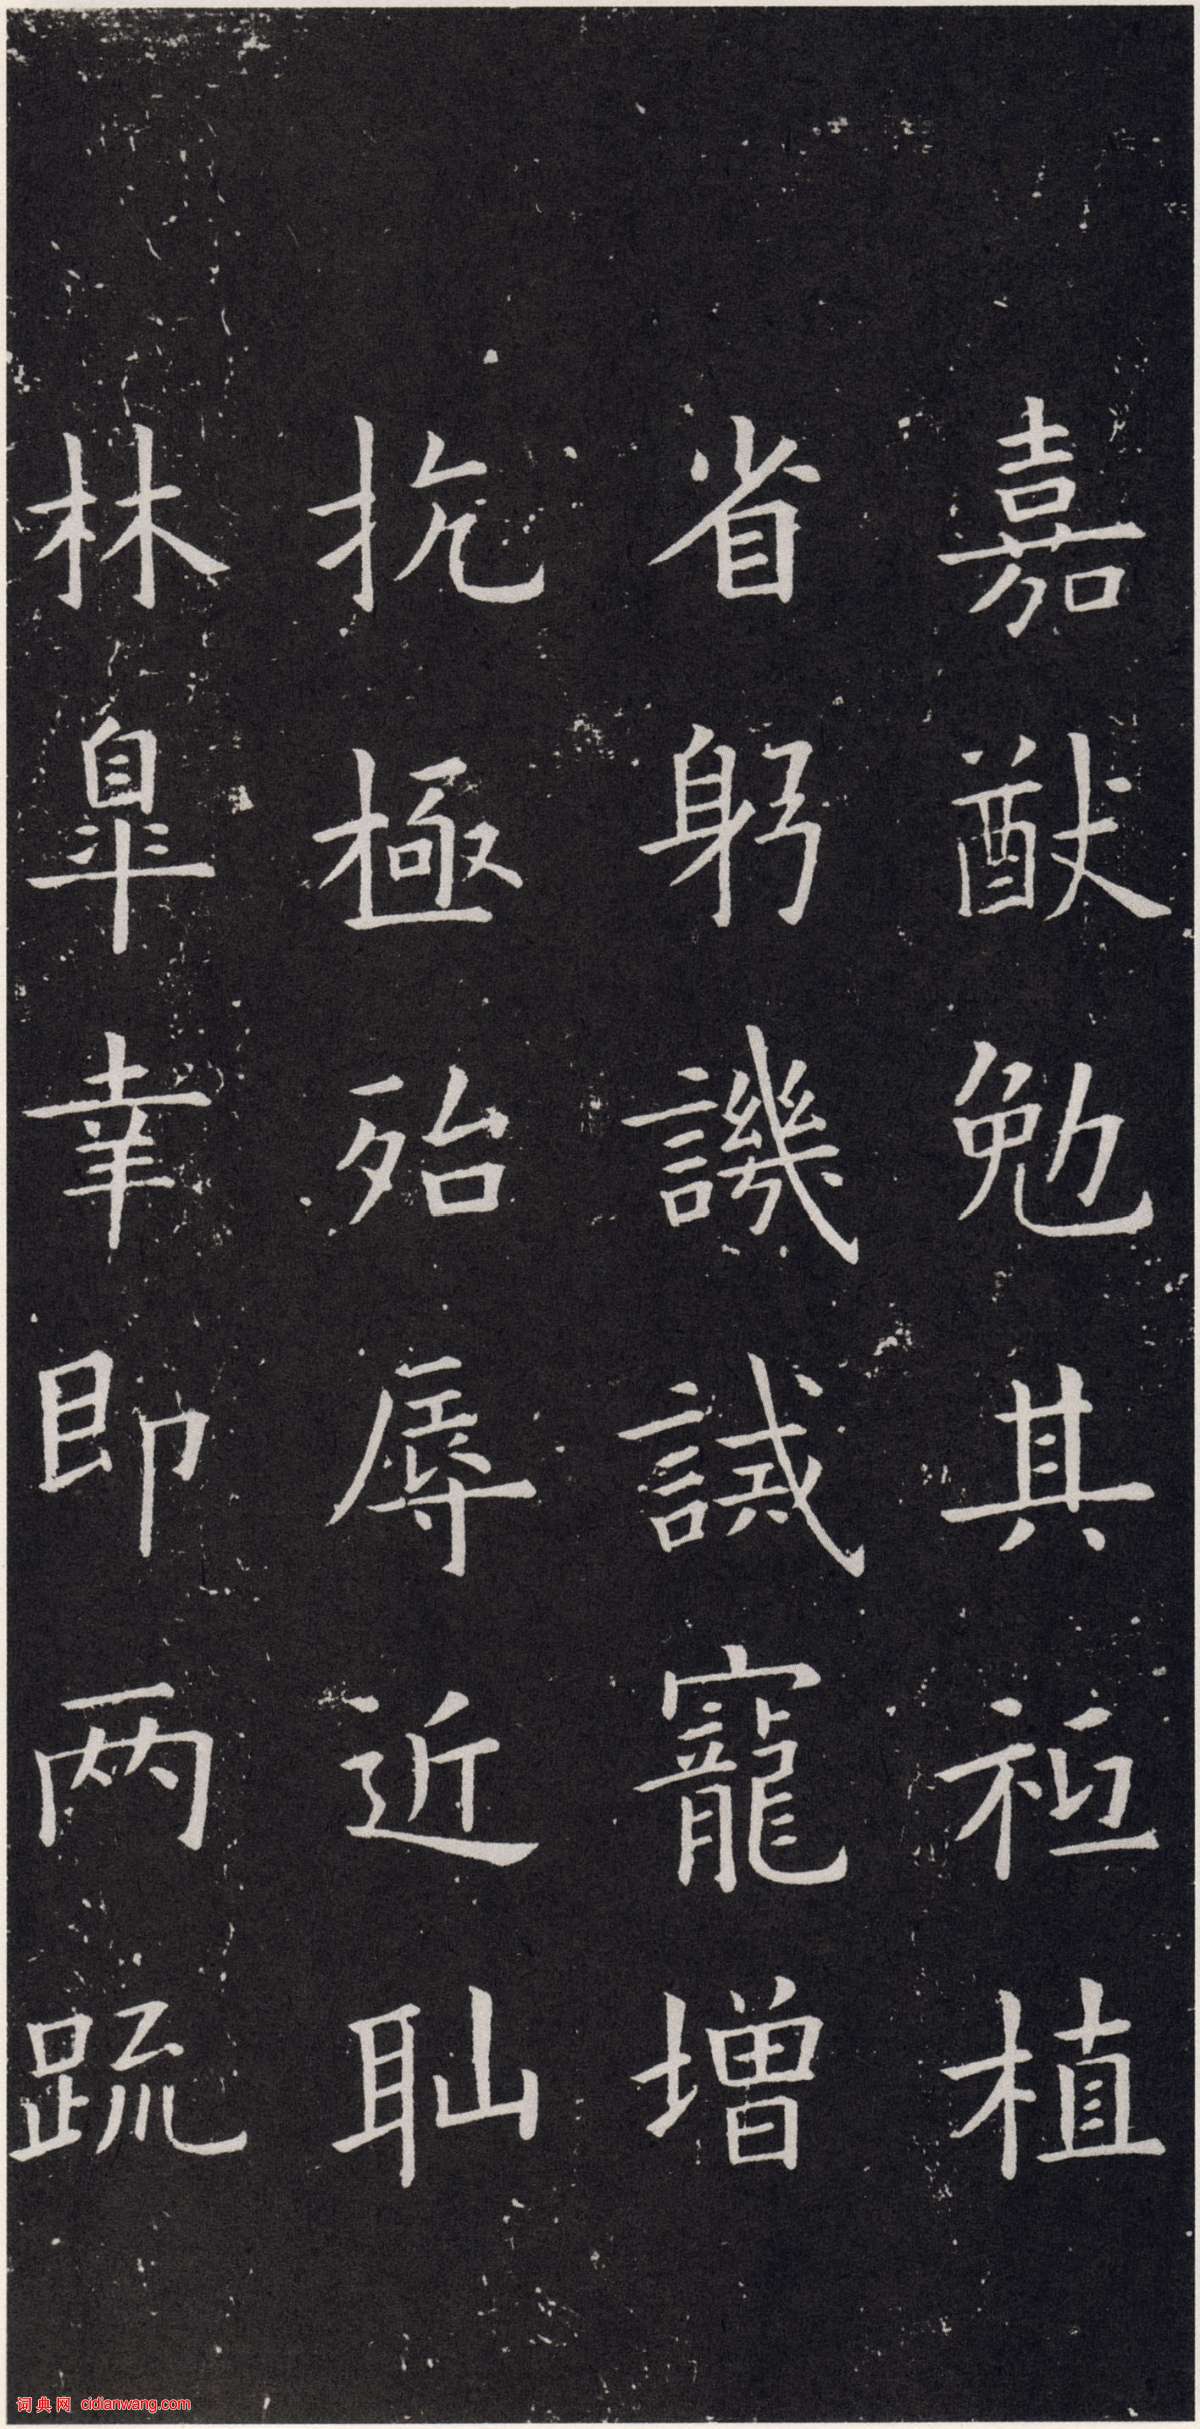 嘉猷勉其祗植
省躬譏誡寵增
抗極殆辱近耻
林皐幸即两疏
词典网 cidianwang.com